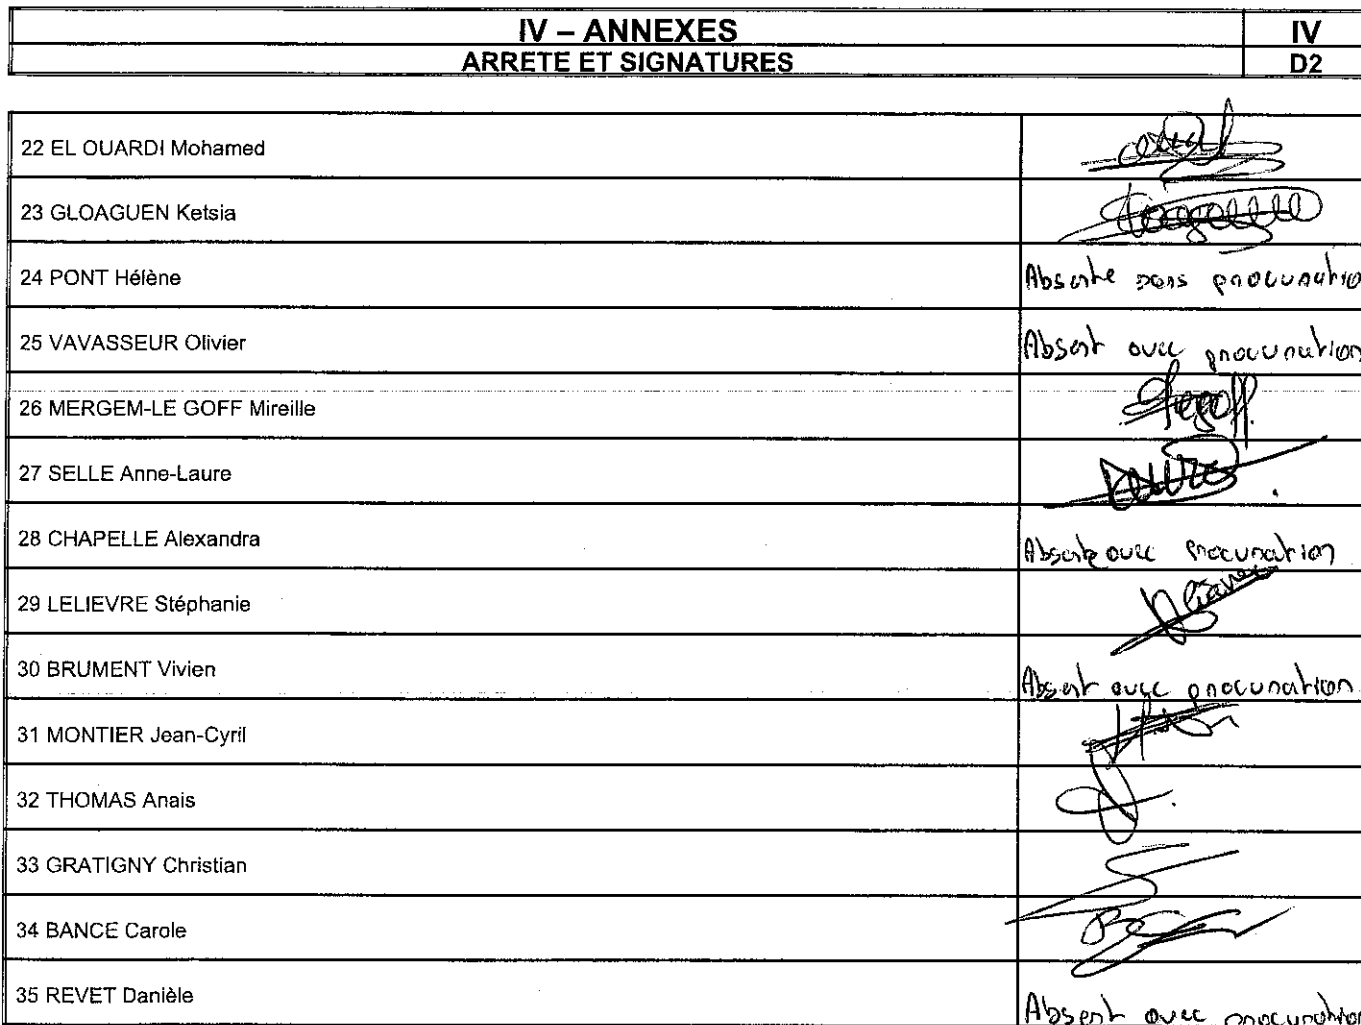 IV – ANNEXES IV
ARRETE ET SIGNATURES D2
22 EL OUARDI Mohamed
23 GLOAGUEN Ketsia
24 PONT Hélène Absente sans procuratio
25 VAVASSEUR Olivier Absent avec procuration
26 MERGEM-LE GOFF Mireille Legoff
27 SELLE Anne-Laure
28 CHAPELLE Alexandra Absente avec procuration
29 LELIEVRE Stéphanie
30 BRUMENT Vivien Absent avec procuration
31 MONTIER Jean-Cyril
32 THOMAS Anais
33 GRATIGNY Christian
34 BANCE Carole
35 REVET Danièle Absent avec procuration